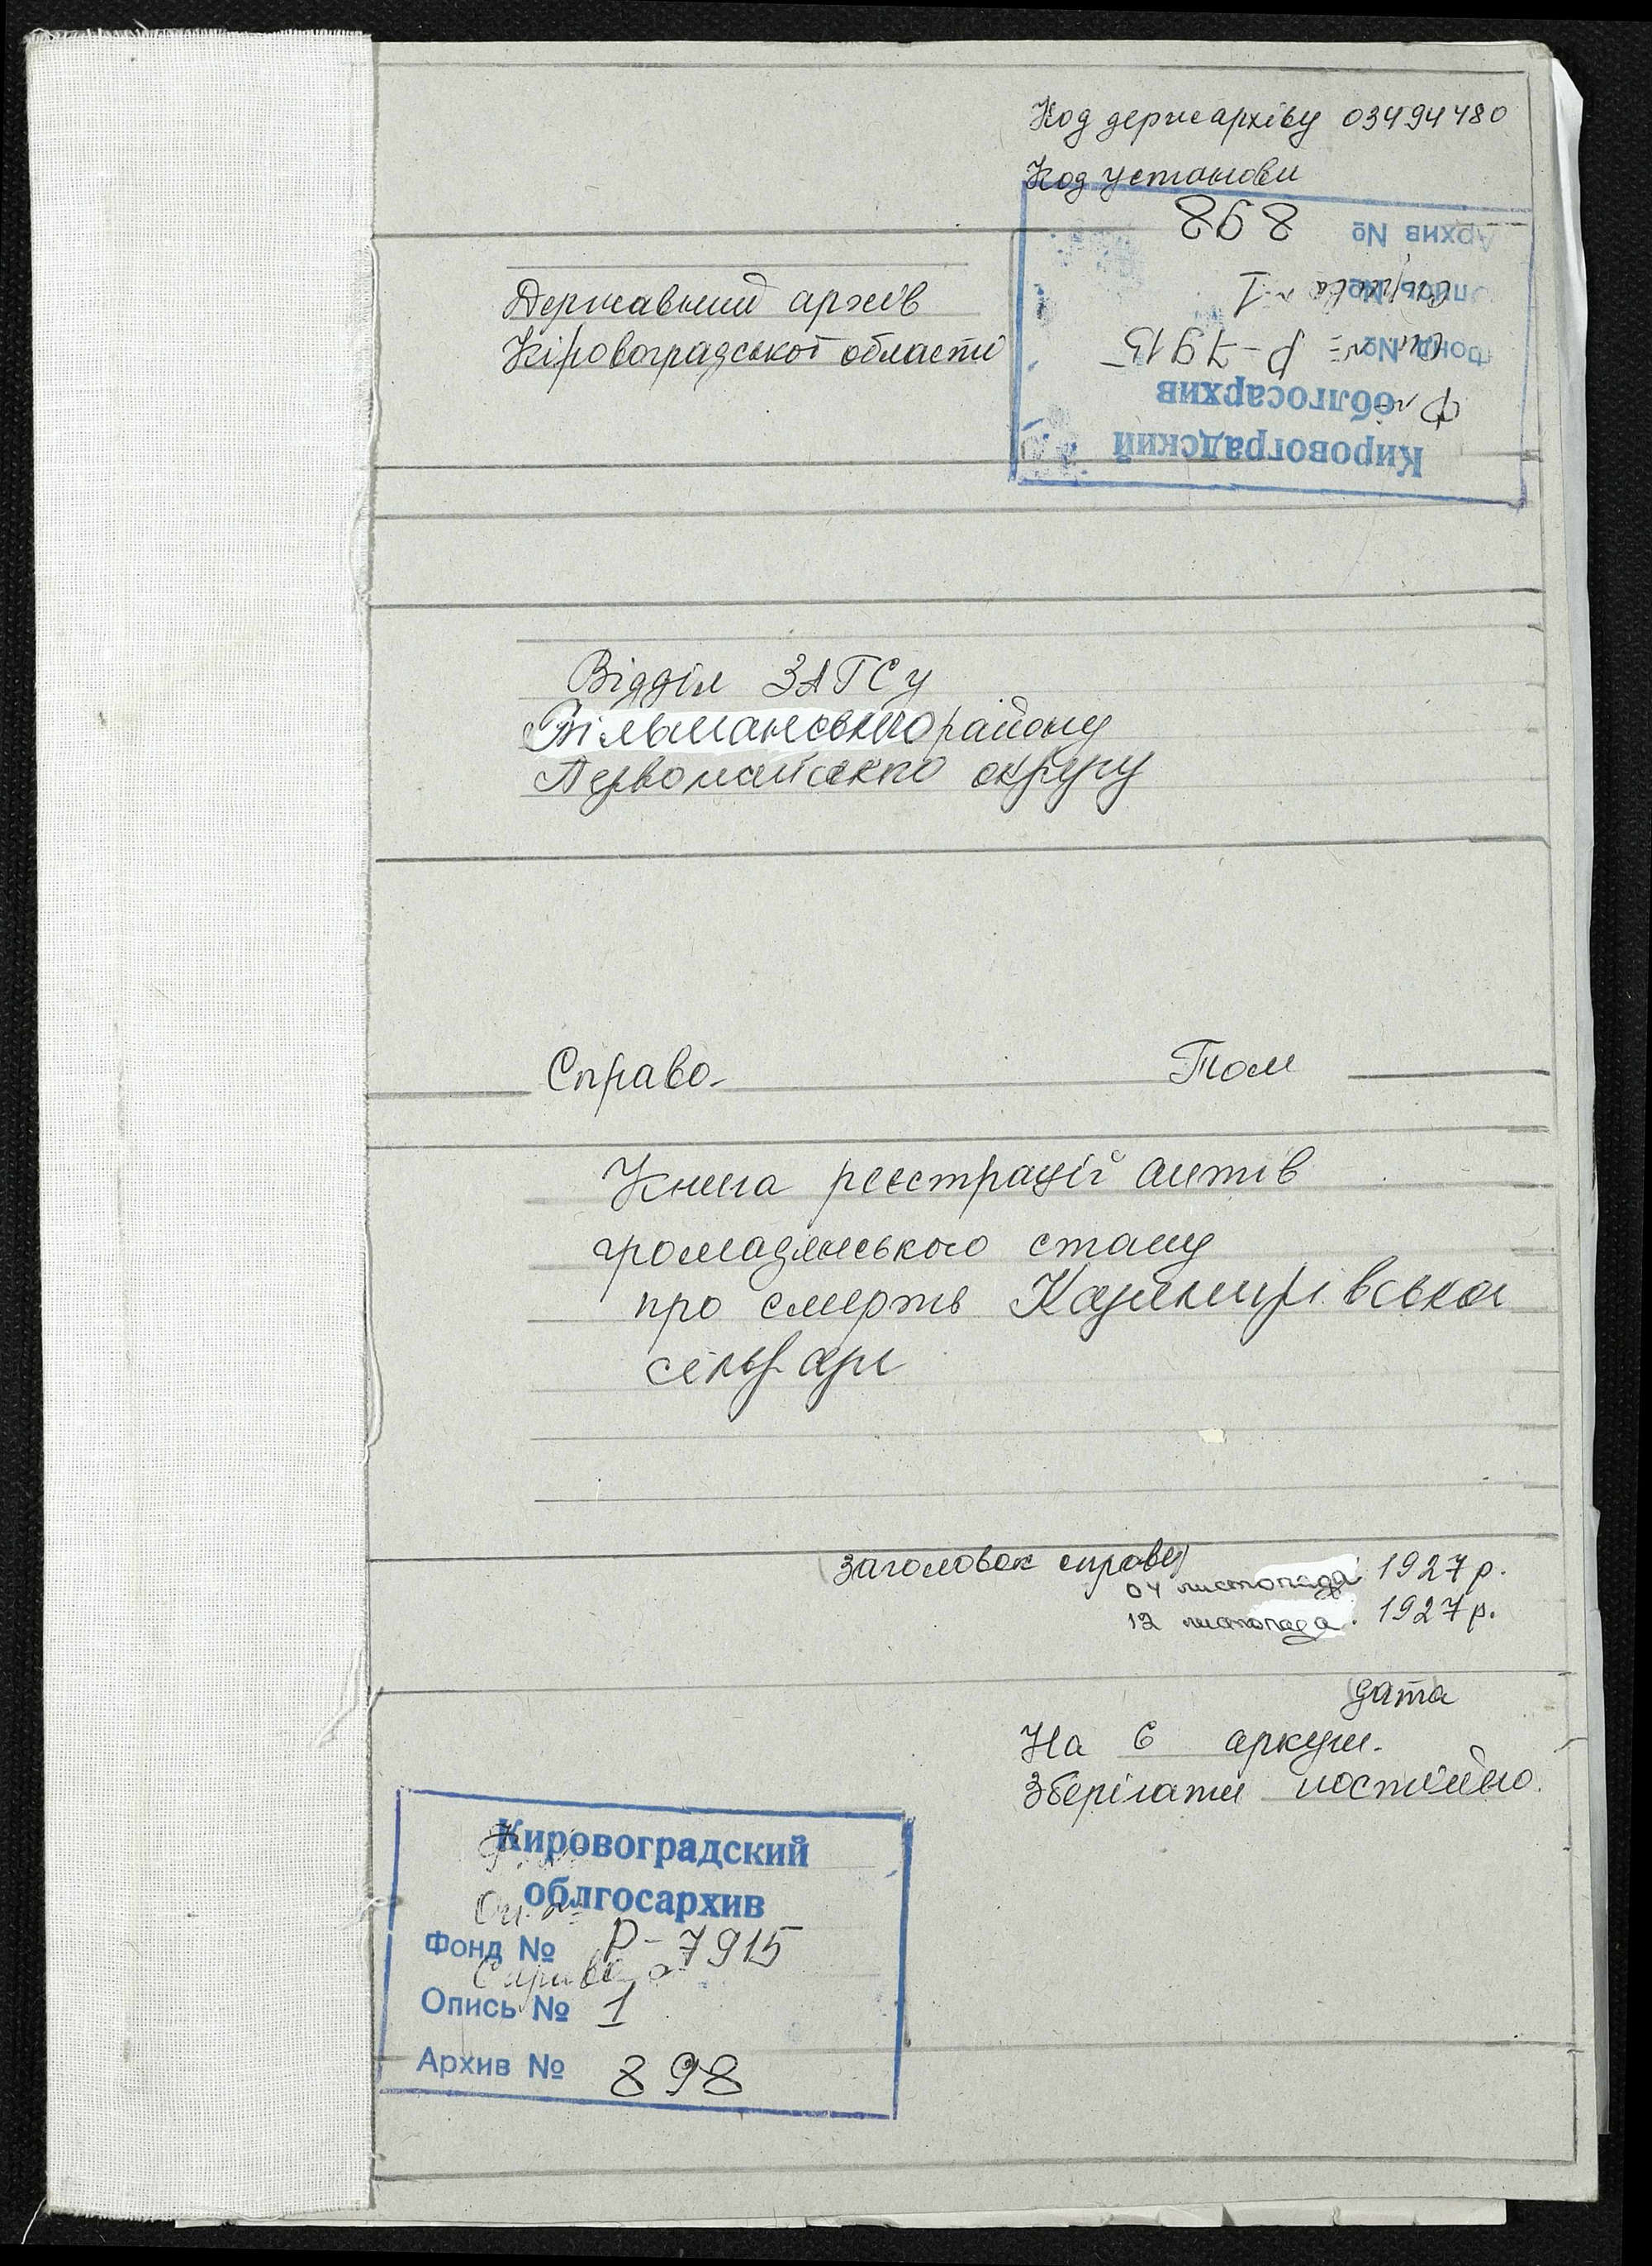 Код держархіву 03494480
Код установи
Архив № 898
Опись № 1
Фонд № Р-7915
облгосархив
Кировоградский
Державний архів
Кіровоградської области
Відділ ЗАГСу
Вільшанського району
Первомайського округу
Справа Том
Книга реєстрації актів
громадянського стану
про смерть Казимирівська
сільрада
(заголовок справи)
04 листопада 1927 р.
12 листопада. 1927 р.
(дата
На 6 аркуш.
Зберігати постійно.
Кировоградский
облгосархив
Фонд № Р-7915
Справа
Опись № 1
Архив № 898